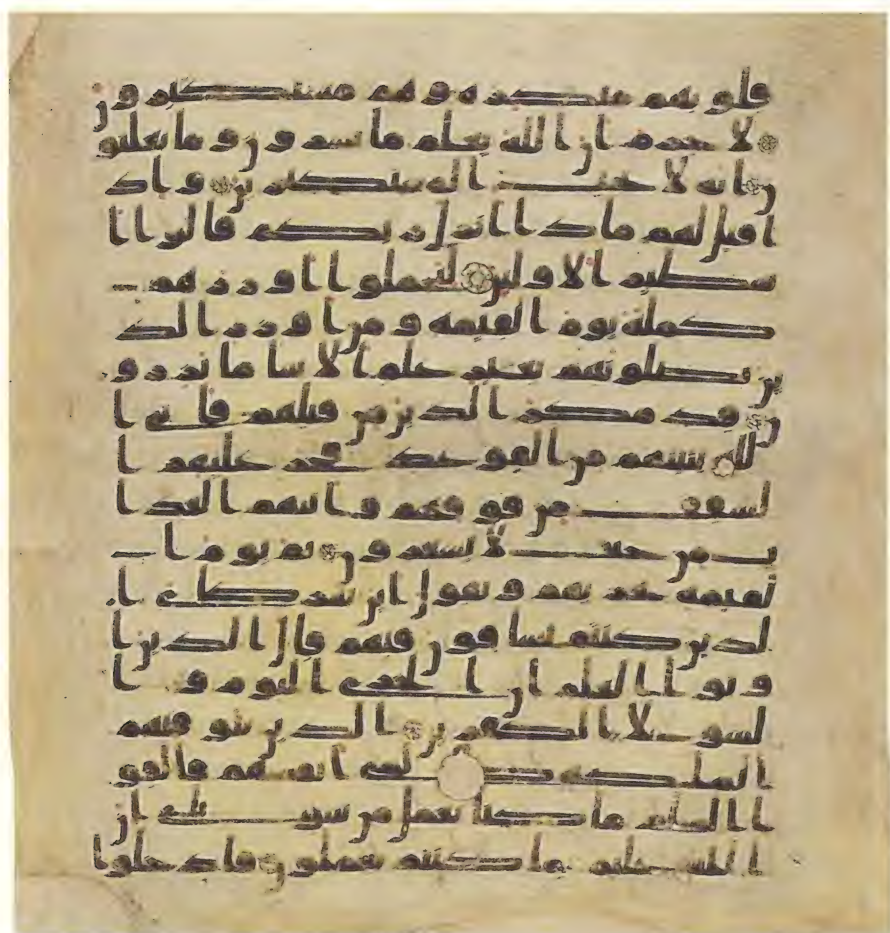 قلوبهم منكره وهم مستكبرو
ن لا جرم ان الله يعلم ما يسرون وما يعلنو
ن انه لا يحب المستكبرين واذ
ا قيل لهم ماذا انزل ربكم قالوا ا
سطير الاولين ليحملوا اوزرهم
كملة يوم القيمه ومن اوزر الذ
ين يضلونهم بغير علم الا سا ما يزرو
ن قد مكر الذين من قبلهم فاتى ا
لله بنينهم من القوعد فخر عليهم ا
لسقف من فوقهم واتيهم العذا
ب من حيث لا يشعرون ثم يوم ا
لقيمه يخزيهم ويقول اين شركاى ا
لذين كنتم تشاقون فيهم قال الذين ا
وتوا العلم ان الخزى اليوم و ا
لسو علا الكفرين الذين تتوفيهم
الملئكه ظلمى انفسهم فالقو
ا السلم ما كنا نعمل من سو بلى ان
الله عليم بما كنتم تعملون فادخلوا